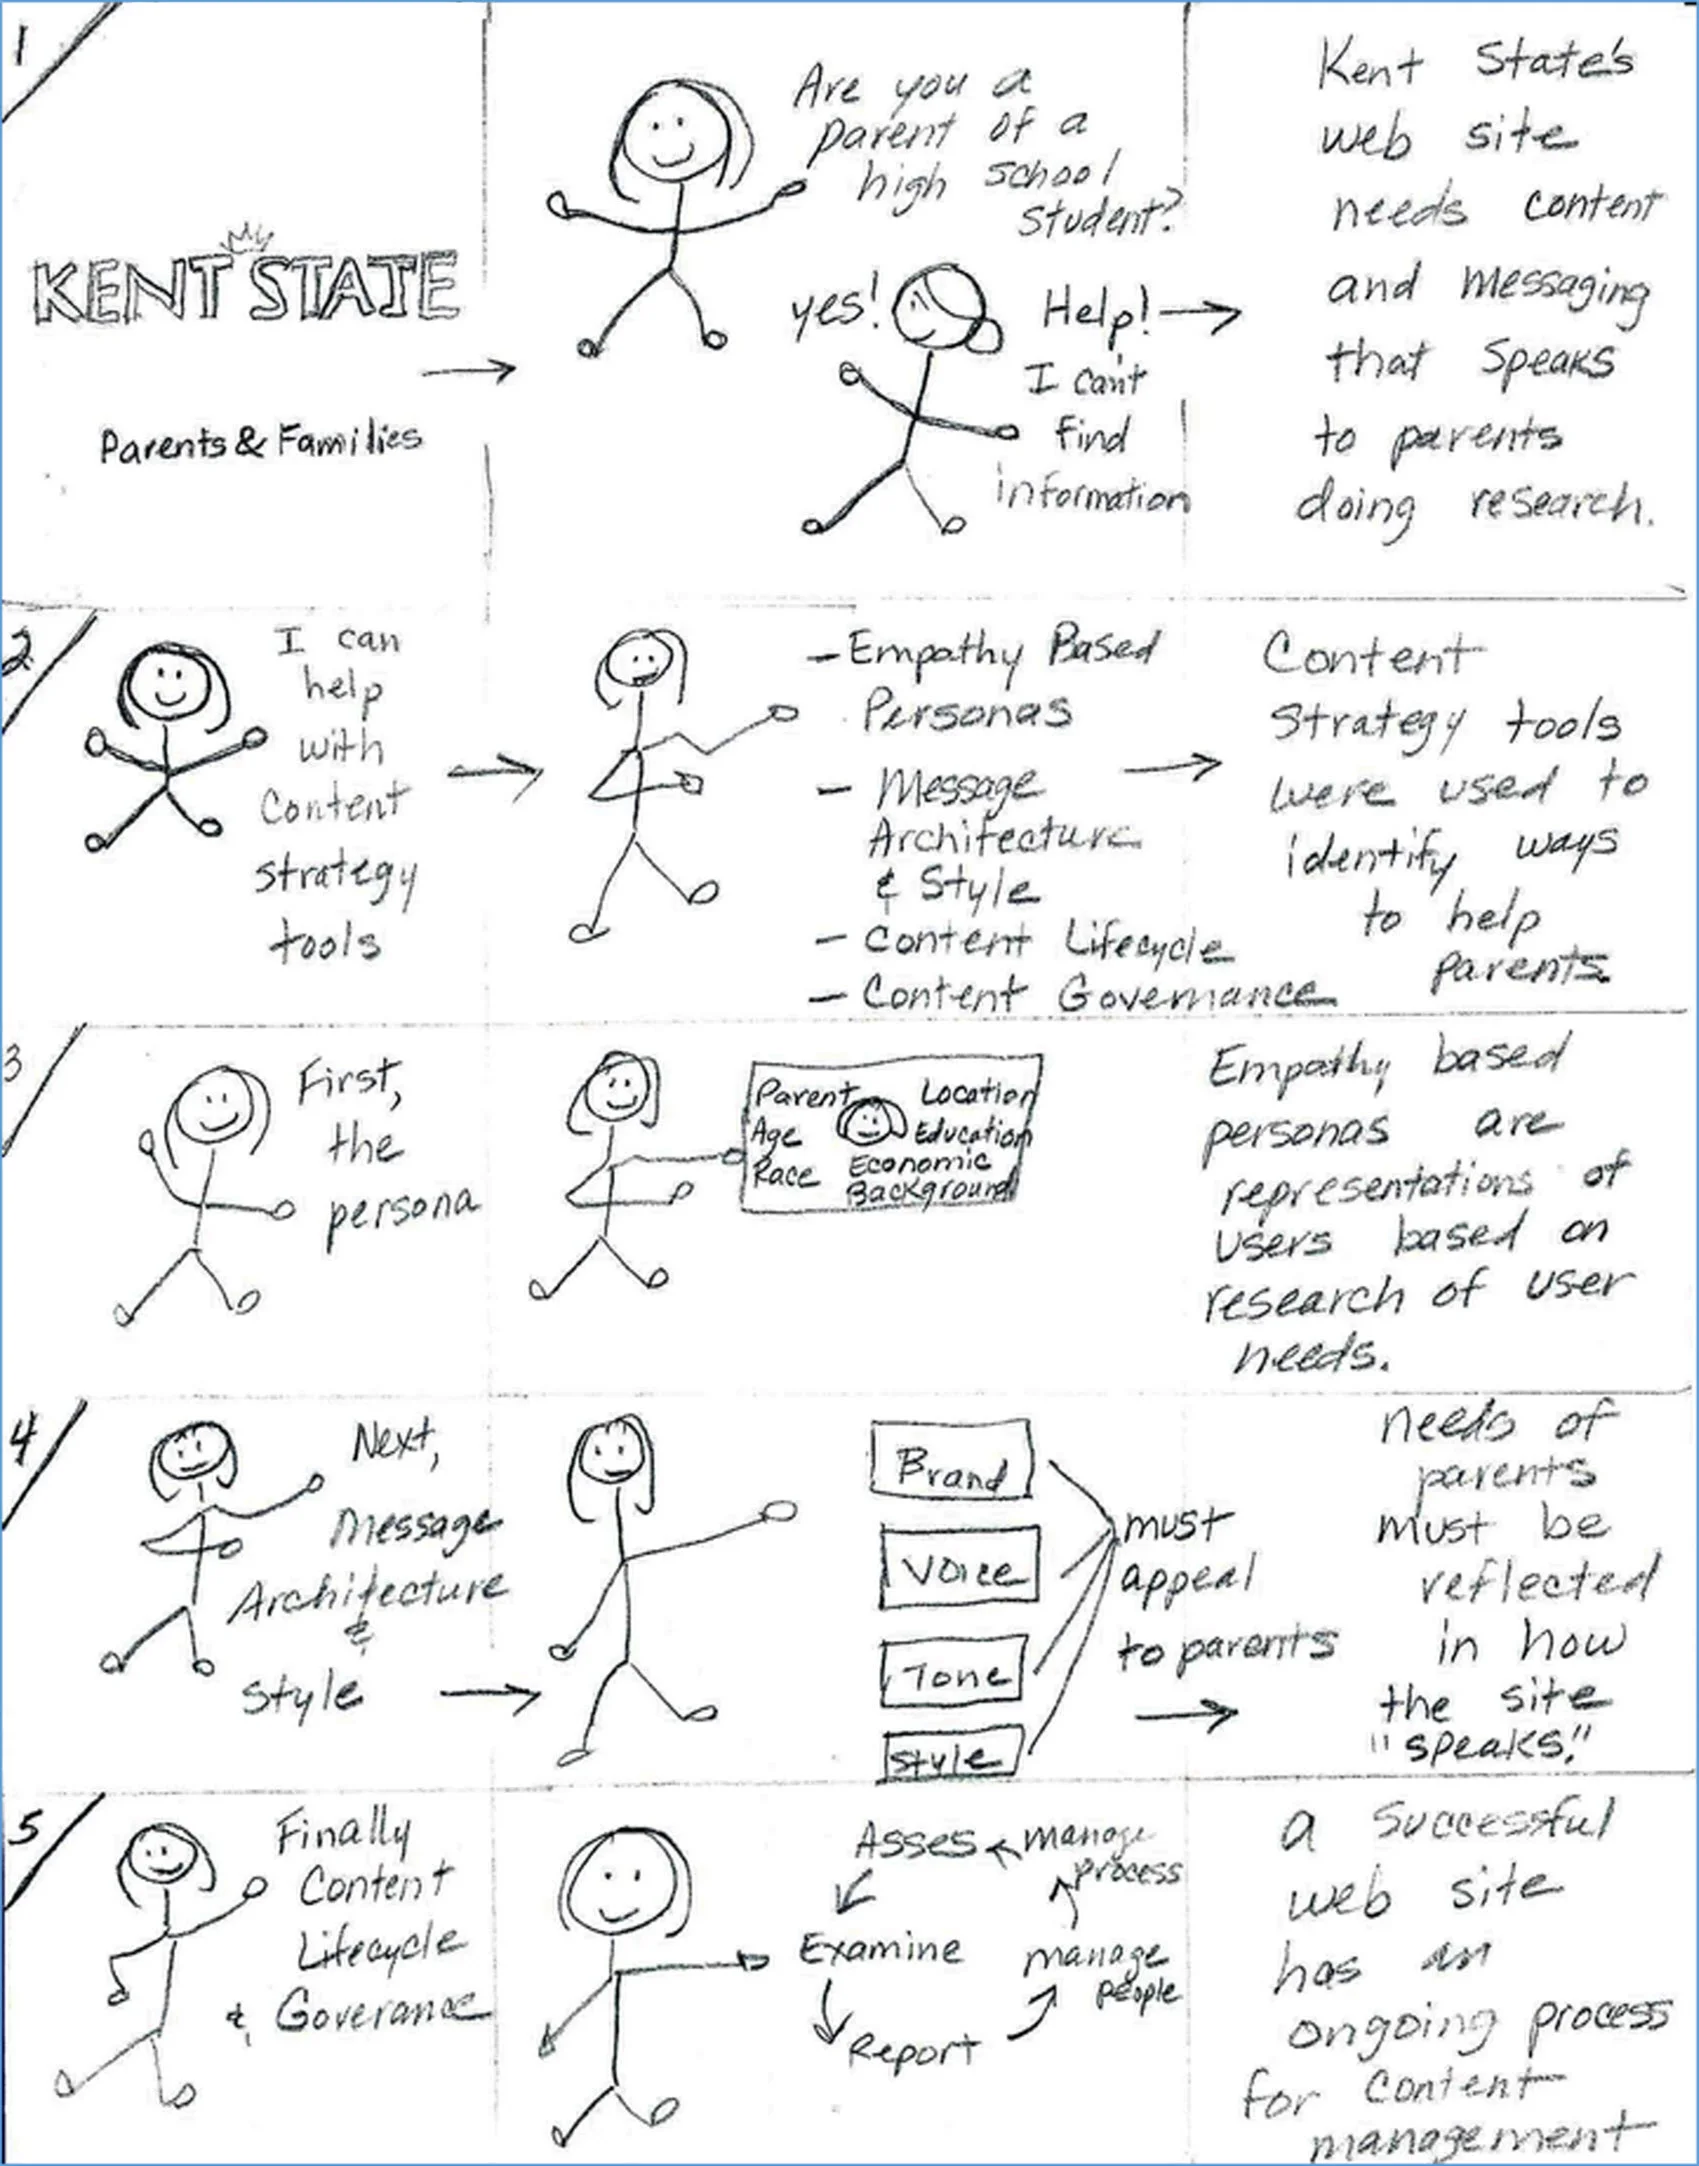 1
KENT STATE
Parents & Families
Are you a
parent of a
high school
student?
yes!
Help!
I can't
find
information
Kent State's
web site
needs content
and messaging
that speaks
to parents
doing research.
2
I can
help
with
Content
strategy
tools
- Empathy Based
Personas
- Message
Architecture
& Style
- Content Lifecycle
- Content Governance
Content
Strategy tools
were used to
identify ways
to help
parents.
3
First,
the
persona
Parent
Age
Race
Location
Education
Economic
Background
Empathy based
personas are
representations of
users based on
research of user
needs.
4
Next,
Message
Architecture
&
style
Brand
Voice
Tone
style
must
appeal
to parents
needs of
parents
must be
reflected
in how
the site
"speaks."
5
Finally
Content
Lifecycle
& Goverance
Asses
manage
process
Examine
manage
people
Report
a successful
web site
has an
ongoing process
for content
management